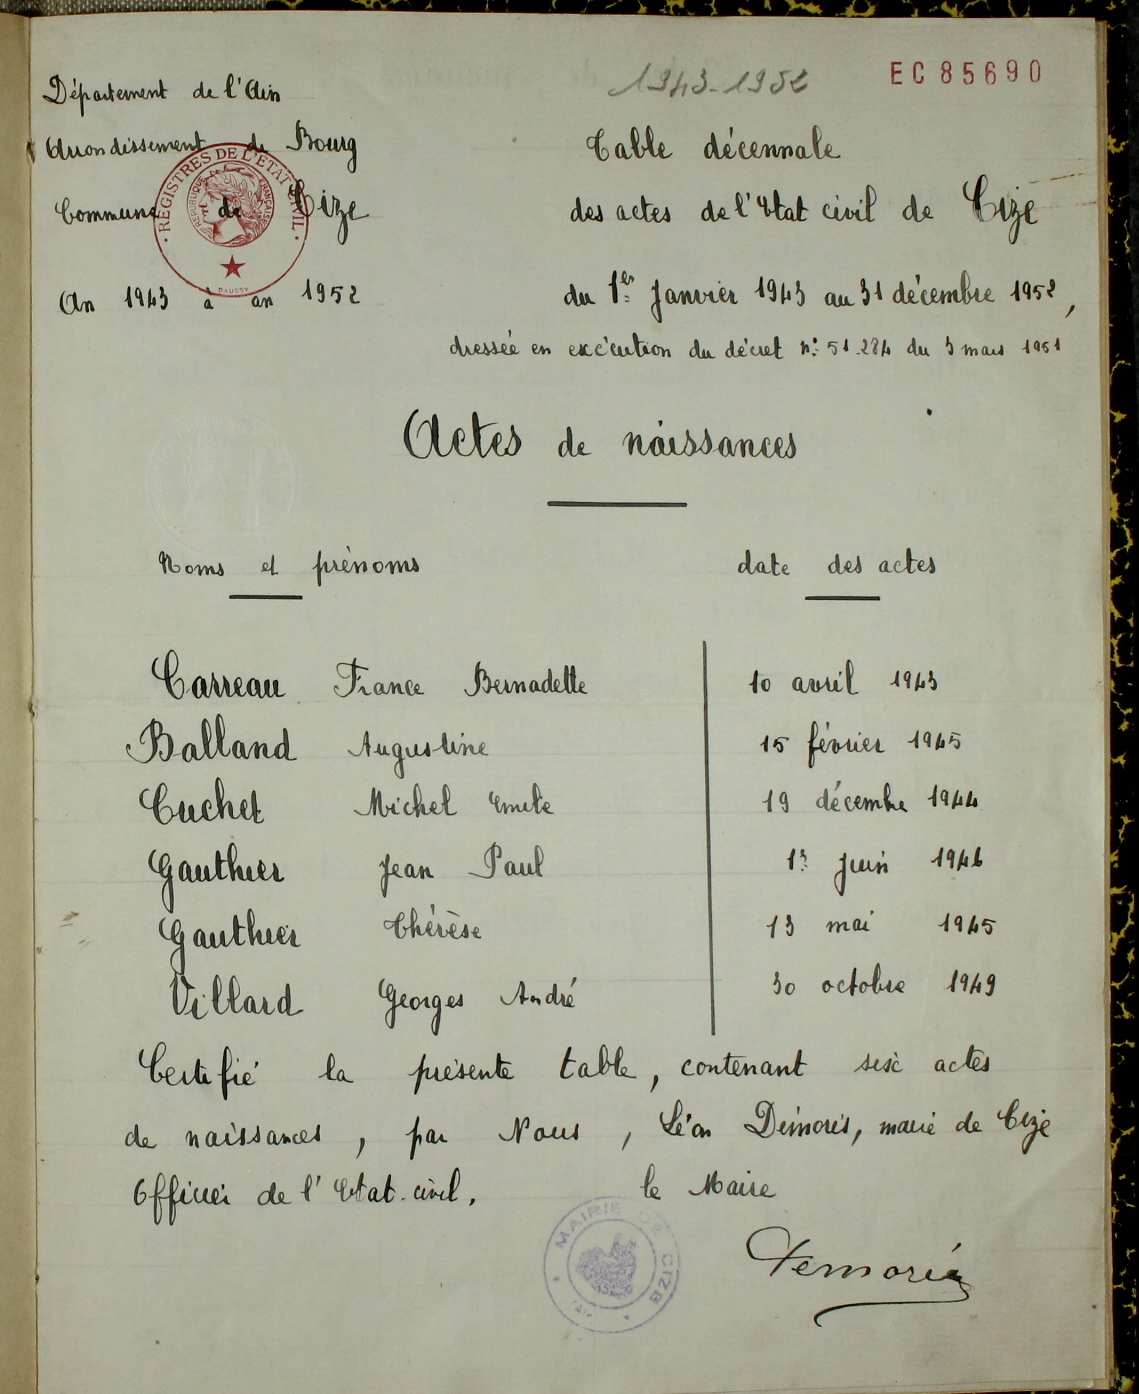 1943-1952
EC 85690
Département de l'Ain
Arrondissement de Bourg
Commune de Cize
An 1943 à an 1952
REGISTRES DE L'ETAT CIVIL
REPUBLIQUE FRANÇAISE
Table décennale
des actes de l'Etat civil de Cize
du 1er Janvier 1943 au 31 décembre 1952,
dressée en exécution du décret n: 51-284 du 3 mars 1951
Actes de naissances
Noms et prénoms date des actes
Carreau France Bernadette 10 avril 1943
Balland Augustine 15 février 1945
Cuchet Michel Emile 19 décembre 1944
Gauthier Jean Paul juin 1946
Gauthier Thérèse 13 mai 1945
Villard Georges André 30 octobre 1949
Certifié la présente table, contenant six actes
de naissances, par Nous, Léon Démoris, maire de Cize
Officier de l'Etat-civil. le Maire
MAIRIE DE CIZE